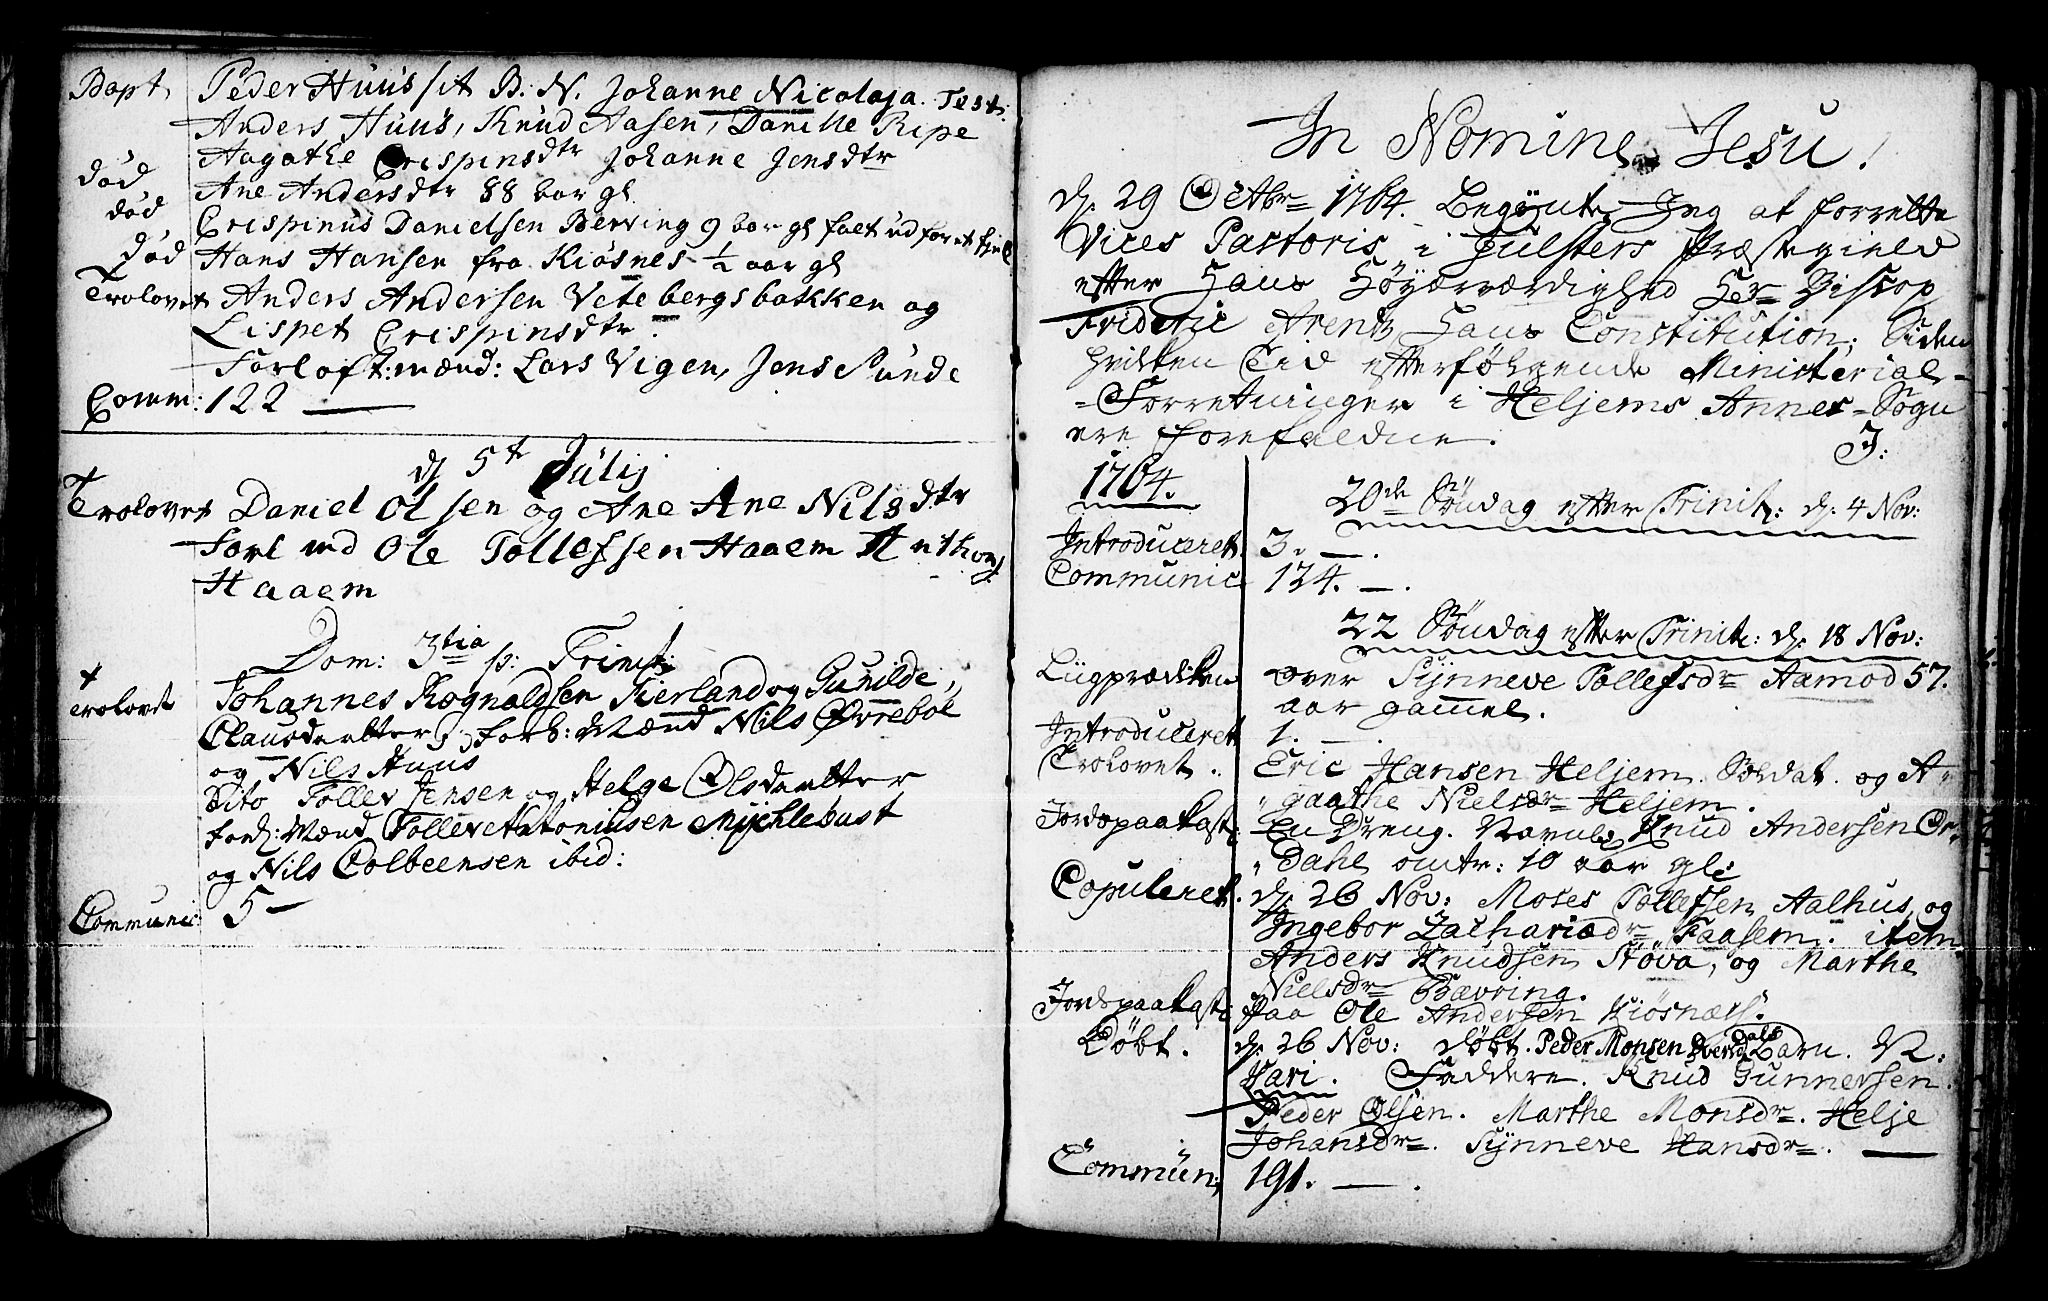 Bapt. Peder Huus sit B. N. Johanne Nicolaja. Test:
Anders Huus, Knud Aasen, Danille Ripe
Aagathe Crispinsdtr Johanne Jensdtr
død Ane Andersdtr 88 aar gl.
død Crispinus Danielsen Berring 9 aar gl falt ud for et
død Hans Hansen fra Kiøsnes ½ aar gl
Trolovet Anders Andersen Vetebergsbakken og
Lispet Crispinsdtr.
Forloft:mænd: Lars Vigen, Jens Sunde
Comm: 122
d 5t Julij
Trolovet Daniel Olsen og Ane Ane Nilsdtr
Forl md Ole Tollefsen Haaem Anthon
Haaem
Dom: 3tia p: Trinit:
Trolovet Johannes Rognaldsen Kierland og Gunilde,
Clausdaatter, forl: Mænd Nils Øvrebøe
og Nils Huus
Dito Tollev Jensen og Helge Olsdaatter
forl: Mænd Tollev Antoniusen Mychlebust
og Nils Colbeensen ibid:
Communic: 5
In Nomine Jesu!
d. 29 Octbr 1764. Begynte Jeg at forrette
Vices Pastoris i Julsters Præstegield
efter Hans Høyærværdighed Her Biscop
Frideric Arentz Hans Constitution; Siden
hvilken Tid efterfølgende Ministerial-
-Forretninger i Heljems Annex-Sogn
ere forefaldne.
J:
1764.
20de Søndag efter Trinit: d. 4 Nov:
Introduceret 3.
Communic: 124.
22 Søndag efter Trinit: d. 18 Nov:
Liigprædiken over Synneve Tollefsdr Aamod 57.
aar gammel.
Introduceret 1.
Trolovet. Eric Hansen Heljem. Soldat. og A-
gaathe Nielsdr Heljem.
Jordspaakast: En Dreng. Navnl: Knud Andersen Ør-
Dahl omtr: 10 aar gl:
Copuleret. d. 26 Nov: Moses Tollefsen Aalhus, og
Ingebor Zachariædr Faasem. item
Anders Knudsen Støva, og Marthe
Nielsdr Bævring.
Jordspaakast: paa Ole Andersen Kiøsnæs.
Døbt. d. 26 Nov: døbt. Peder Monsen Øvers dals Barn. N:
Kari. Faddere. Knud Gunnersen.
Peder Olsen. Marthe Monsdr. Helje
Johansdr. Synneve Hansdr.
Commun: 191.